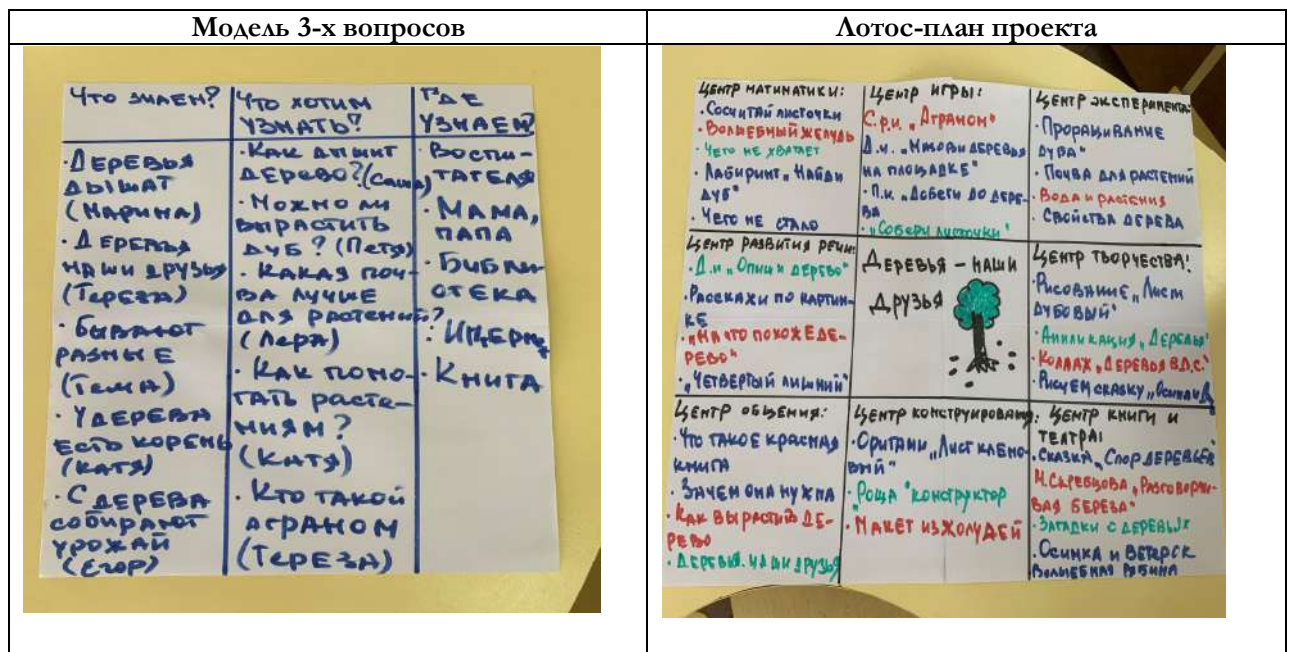 Модель 3-х вопросов
Лотос-план проекта
Что знаем?
Деревья
дышат
(Марина)
Деревья
наши друзья
(Тереза)
Бывают
разные
(Тема)
У дерева
есть корень
(Катя)
С дерева
собирают
урожай
(Егор)
Что хотим
узнать?
Как дышит
дерево? (Саша)
Можно ли
вырастить
дуб? (Петя)
Какая поч-
ва лучше
для растений?
(Лера)
Как помо-
гать расте-
ниям?
(Катя)
Кто такой
аграном
(Тереза)
Где
узнаем?
Воспи-
тателя
Мама,
папа
Библи-
отека
Книга
Центр матиматики:
Сосчитай листочки
Волшебный желудь
Чего не хватает
Лабиринт „Найди
дуб"
Чего не стало
Центр игры:
С.р.и. „Аграном"
Д.и. „Назови деревья
на площадке"
П.и. „Добеги до дере-
ва
„Собери листочки"
Центр эксперимента:
Проращивание
дуба"
Почва для растений
Вода и растения
Свойства дерева
Центр развития речи:
Д.и „Опиши дерево"
Расскажи по картин-
ке
„На что похоже де-
рево"
„Четвертый лишний"
Деревья – наши
друзья
Центр творчества:
Рисование „Лист
дубовый"
Аппликация „Деревья"
Коллаж „Деревья в Д.С."
Рисуем сказку
Центр общения:
Что такое красная
книга
Зачем она нужна
Как вырастить де-
рево
Деревья наши друзья
Центр конструирования:
Оригами „Лист клено-
вый"
„Роща" конструктор
Макет из жолудей
Центр книги и
театра:
Сказка „Спор деревьев
М. Скребцова „Разговорчи-
вая береза"
Загадки о деревьях
Осинка и ветерок
Волшебная рябина